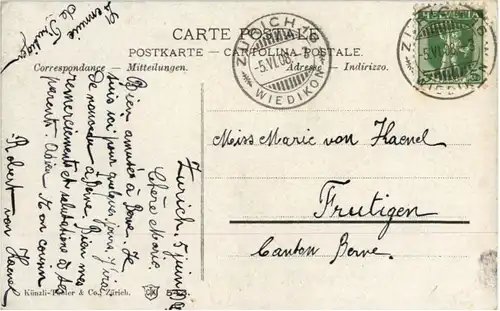 CARTE POSTALE
POSTKARTE — CARTOLINA POSTALE.
Correspondance — Mitteilungen.
Adresse — Indirizzo.
ZÜRICH 19
-5.VI.08.-7
WIEDIKON
ZÜRICH 19
-5.VI.08
WIEDIKON
Miss Marie von Haenel
Frutigen
Canton Berne.
Zurich, 5 juin
Chère Marie,
Bien amusée à Berne. Je
suis ici pour quelques jours. J'irai
de nouveau à Berne. Bien mes
remerciements et salutations à tes
parents. Adieu Mon cousin
Robert von Haenel
de Frutigen
Künzli-Tobler & Co., Zürich.